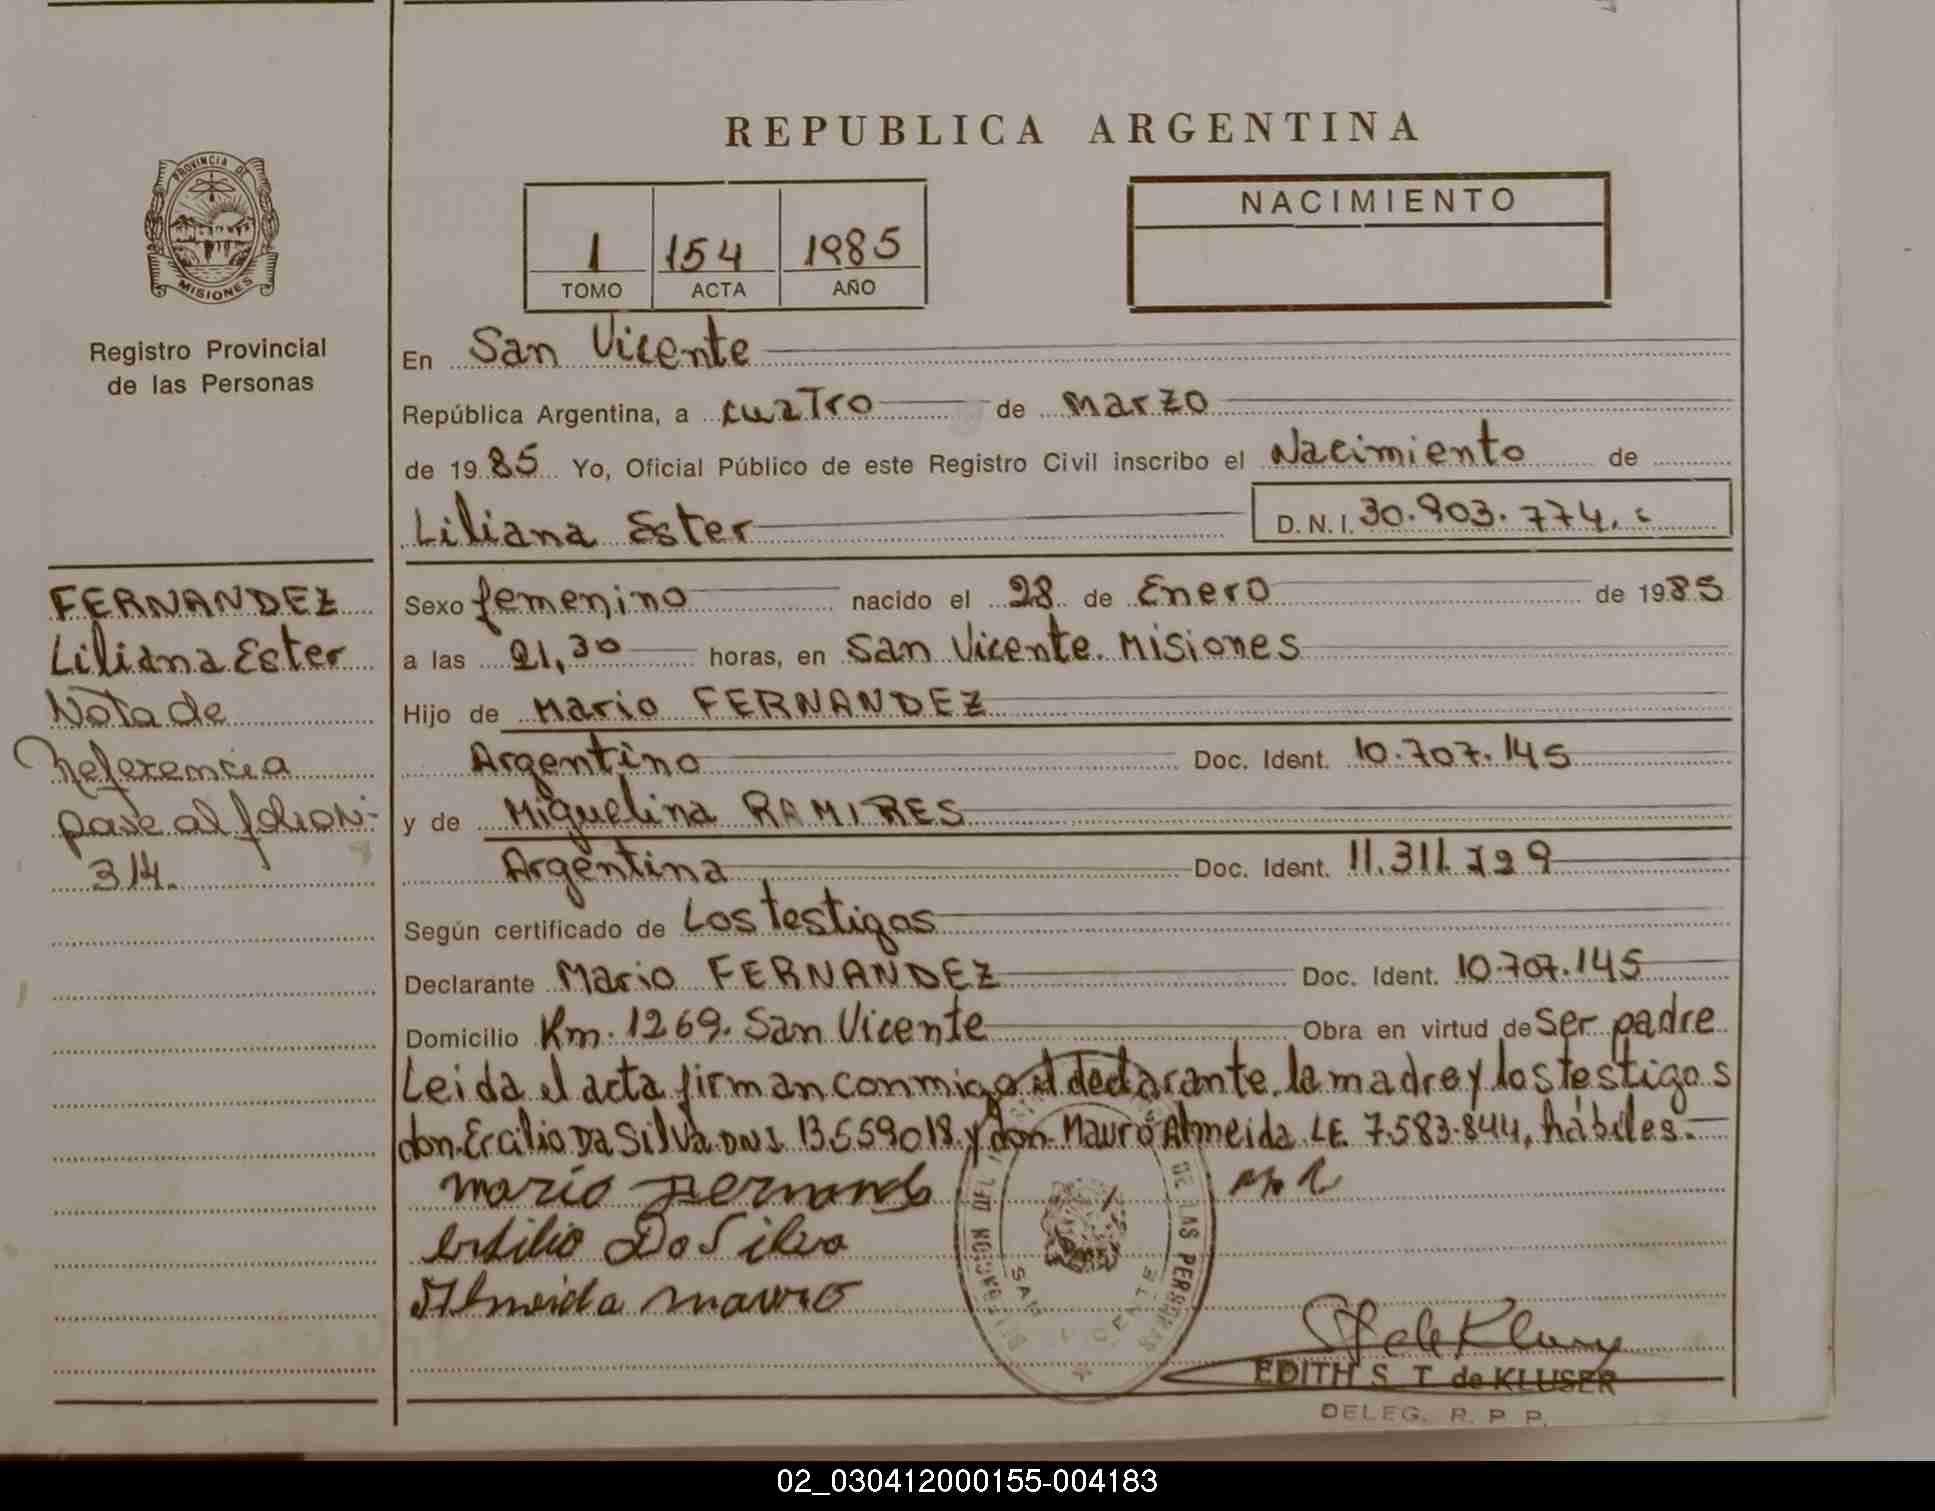 REPUBLICA ARGENTINA
PROVINCIA DE
MISIONES
Registro Provincial
de las Personas
1 154 1985
TOMO ACTA AÑO
NACIMIENTO
En San Vicente
República Argentina, a cuatro de Marzo
de 1985 Yo, Oficial Público de este Registro Civil inscribo el Nacimiento de
Liliana Ester D.N.I. 30.903.774.
FERNANDEZ
Liliana Ester
Nota de
Referencia
pase al folio N
314.
Sexo femenino nacido el 28 de Enero de 1985
a las 21,30 horas, en San Vicente. Misiones
Hijo de Mario FERNANDEZ
Argentino Doc. Ident. 10.707.145
y de Miguelina RAMIRES
Argentina Doc. Ident. 11.311.729
Según certificado de Los testigos
Declarante Mario FERNANDEZ Doc. Ident. 10.707.145
Domicilio Km. 1269. San Vicente Obra en virtud de Ser padre
Leida el acta firman conmigo el declarante, la madre y los testigos
don Ercilio Da Silva DNI 13.559018 y don Mauro Almeida LE 7.583.844, hábiles.
mario
Da Silva
Almeida mauro
DE LAS PERSONAS
SAN VICENTE
de Kluser
EDITH S. T. de KLUSER
DELEG. R. P. P.
02_030412000155-004183